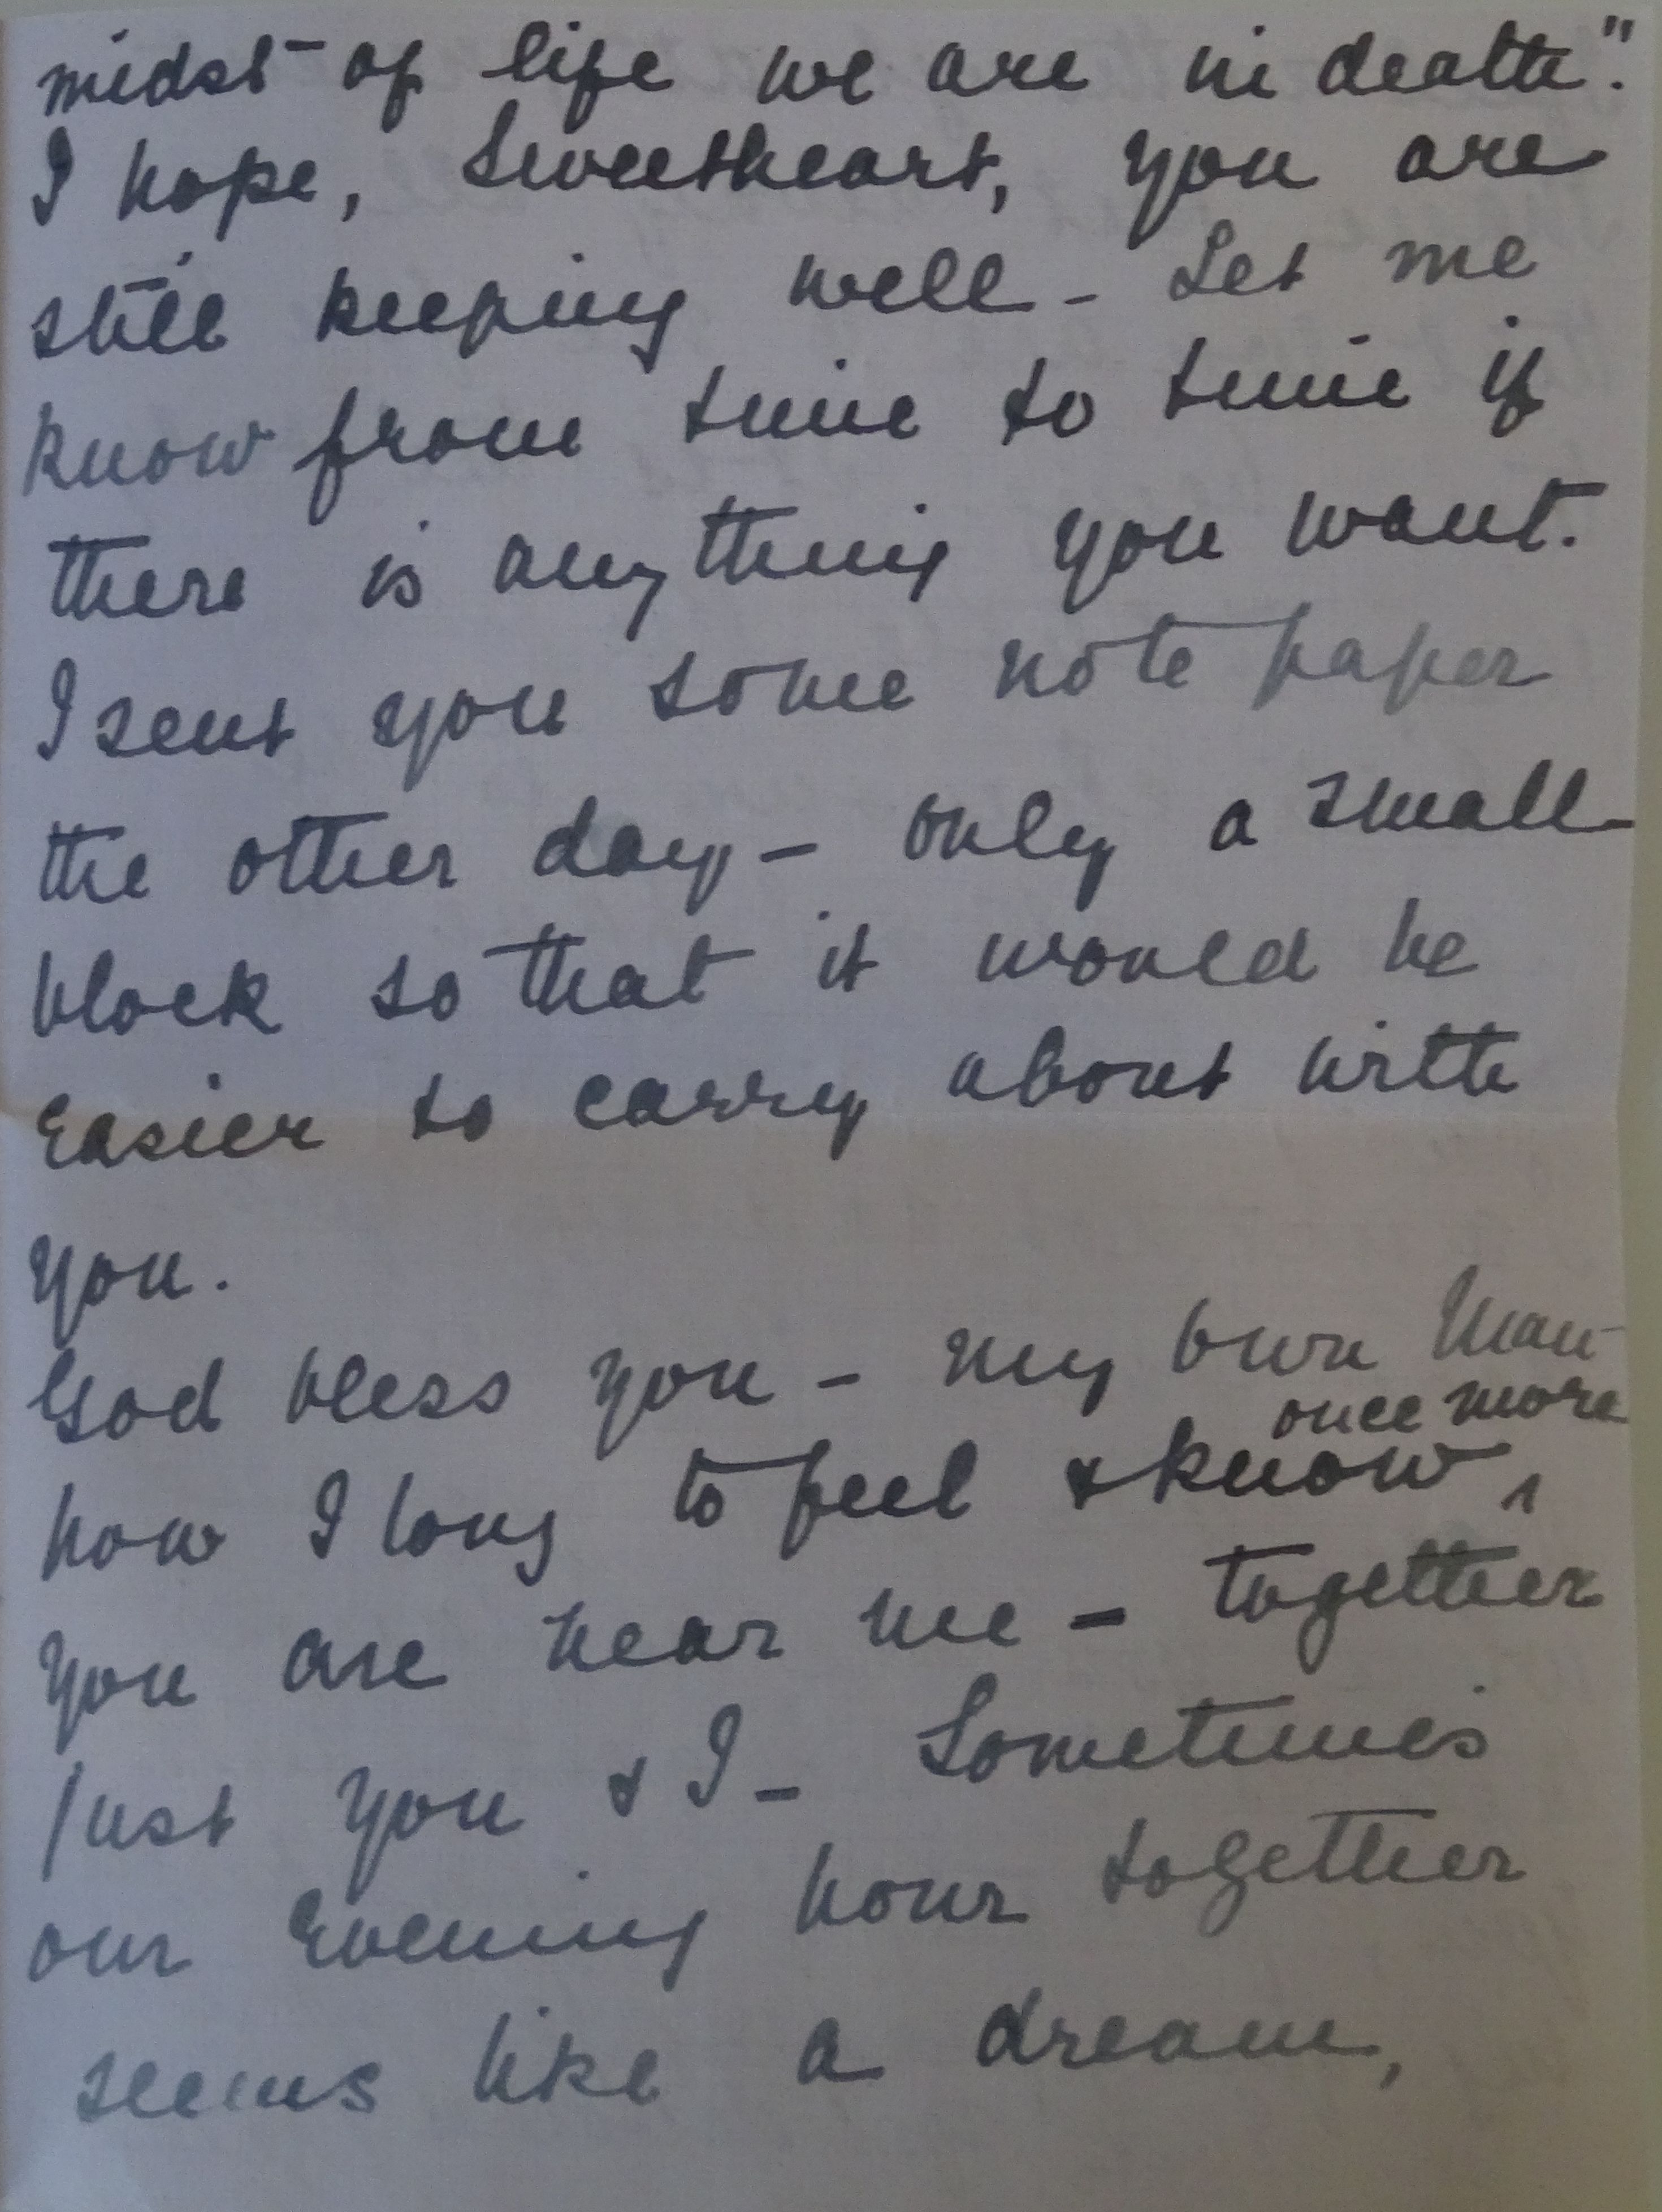 midst of life we are in death".
I hope, Sweetheart, you are
still keeping well - Let me
know from time to time if
there is anything you want.
I sent you some note paper
the other day - only a small
block so that it would be
easier to carry about with
you.
God bless you - my own Man
once more
how I long to feel & know ^
you are near me - together
just you & I - Sometimes
our evening hour together
seems like a dream,